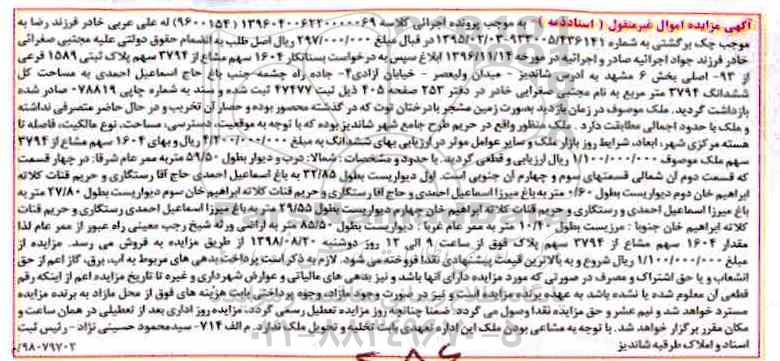 آگهی مزایده اموال غیرمنقول ( اسنادذمه ) - به موجب پرونده اجرائی کلاسه ۱۳۹۶۰۴۰۰۶۲۲۰۰۰۰۰۶۹ (۹۶۰۰۱۵۴) له علی عربی خادر فرزند رضا به
موجب چک برگشتی به شماره ۱۳۹۵/۰۲/۰۳-۹۳۳۰۰۵/۴۳۶۱۴۱ در قبال مبلغ ۲۹۷/۰۰۰/۰۰۰ ریال اصل طلب به انضمام حقوق دولتی علیه مجتبی صفرائی
خادر فرزند جواد اجرائیه صادر و اجرائیه در مورخه ۱۳۹۶/۱۱/۱۴ ابلاغ سپس به درخواست بستانکار ۱۶۰۴ سهم مشاع از ۳۷۹۴ سهم پلاک ثبتی ۱۵۸۹ فرعی
از ۹۳- اصلی بخش ۶ مشهد به آدرس شاندیز - میدان ولیعصر - خیابان آزادی۴- جاده راه چشمه جنب باغ حاج اسماعیل احمدی به مساحت کل
ششدانگ ۳۷۹۴ متر مربع به نام مجتبی صفرایی خادر در دفتر ۲۵۳ صفحه ۴۰۵ ذیل ثبت ۴۷۴۷۷ ثبت شده و سند به شماره چاپی ۰۷۸۸۱۹ صادر شده
بازداشت گردید. ملک موصوف در زمان بازدید بصورت زمین مشجر بادرختان توت که در گذشته محصور بوده و حصار آن تخریب و در حال حاضر متصرفی نداشته
و ملک با حدود اجمالی مطابقت دارد . ملک منظور واقع در حریم طرح جامع شهر شاندیز بوده که با توجه به موقعیت، دسترسی، مساحت، نوع مالکیت، فاصله تا
هسته مرکزی شهر، ابعاد، شرایط روز بازار ملک و سایر عوامل موثر در ارزیابی بهای ششدانگ به مبلغ ۴/۲۰۰/۰۰۰/۰۰۰ ریال و بهای ۱۶۰۴ سهم مشاع از ۳۷۹۴
سهم ملک موصوف ۱/۱۰۰/۰۰۰/۰۰۰ ریال ارزیابی و قطعی گردید. با حدود و مشخصات : شمالا: درب و دیوار بطول ۵۹/۵۰ متربه ممر عام شرقا: در چهار قسمت
که قسمت دوم آن شمالی قسمتهای سوم و چهارم آن جنوبی است. اول دیواریست بطول ۳۲/۸۵ به باغ اسماعیل احمدی حاج آقا رستگاری و حریم قنات کلاته
ابراهیم خان دوم دیواریست بطول ۰/۶۰ متر به باغ میرزا اسماعیل احمدی و حاج آقا رستگاری و حریم قنات کلاته ابراهیم خان سوم دیواریست بطول ۲۷/۸۰ متر به
باغ میرزا اسماعیل احمدی و رستگاری و حریم قنات کلاته ابراهیم خان چهارم دیواریست بطول ۲۹/۵۵ متر به باغ میرزا اسماعیل احمدی رستگاری و حریم قنات
کلاته ابراهیم خان جنوبا : مرزیست بطول ۱۰/۴۰ متر به ممر عام غربا : دیواریست بطول ۸۵/۵۰ متر به اراضی ورثه شیخ رجب معینی راه عبور از ممر عام لذا
مقدار ۱۶۰۴ سهم مشاع از ۳۷۹۴ سهم پلاک فوق از ساعت ۹ الی ۱۲ روز دوشنبه ۱۳۹۸/۰۸/۲۰ از طریق مزایده به فروش می رسد. مزایده از
مبلغ ۱/۱۰۰/۰۰۰/۰۰۰ ریال شروع و به بالاترین قیمت پیشنهادی نقدا فروخته می شود. لازم به ذکر است پرداخت بدهی های مربوط به آب، برق، گاز اعم از حق
انشعاب و یا حق اشتراک و مصرف در صورتی که مورد مزایده دارای آنها باشد و نیز بدهی های مالیاتی و عوارض شهرداری و غیره تا تاریخ مزایده اعم از اینکه رقم
قطعی آن معلوم شده یا نشده باشد به عهده برنده مزایده است و نیز در صورت وجود مازاد، وجوه پرداختی بابت هزینه های فوق از محل مازاد به برنده مزایده
مسترد خواهد شد و نیم عشر و حق مزایده نقدا وصول می گردد. ضمنا چنانچه روز مزایده تعطیل رسمی گردد، مزایده روز اداری بعد از تعطیلی در همان ساعت و
مکان مقرر برگزار خواهد شد. با توجه به مشاعی بودن ملک این اداره تعهدی بابت تخلیه و تحویل ملک ندارد. م الف ۷۱۴- سیدمحمود حسینی نژاد - رئیس ثبت
اسناد و املاک طرقبه شاندیز
۹۸۰۷۹۷۰۲/
۰۲۱-۸۸۳۴۹۶۷۰-۵